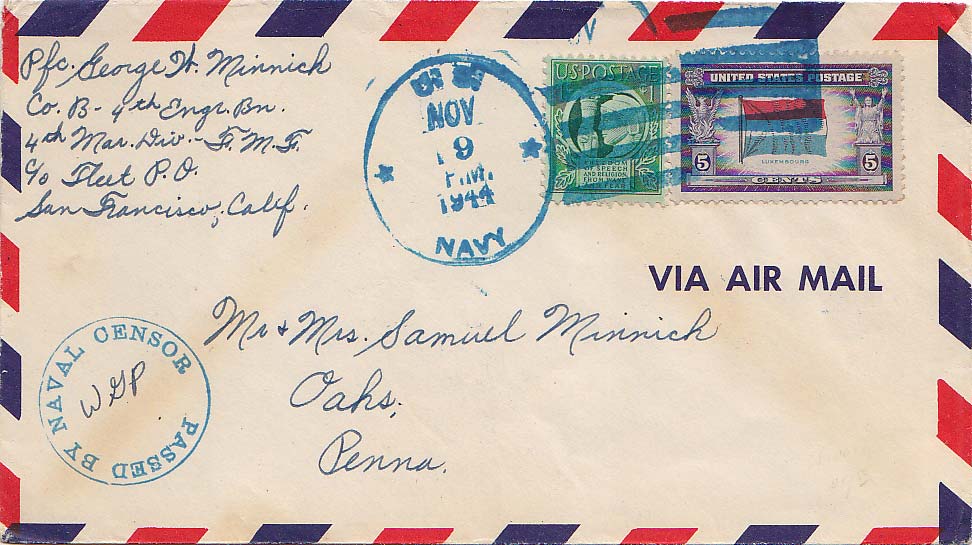 Pfc. George W. Minnich
Co. B - 4th Engr. Bn.
4th Mar. Div. - F.M.F.
C/o Fleet P.O.
San Francisco, Calif.
NOV
9
P.M.
1944
NAVY
U.S. POSTAGE
1
FREEDOM
OF SPEECH
AND RELIGION,
FROM WANT
FEAR
UNITED STATES POSTAGE
LUXEMBOURG
5 5
CENTS
VIA AIR MAIL
Mr & Mrs. Samuel Minnich
Oaks,
Penna.
PASSED BY NAVAL CENSOR
WGP